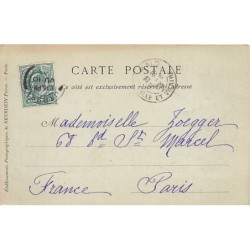 CARTE POSTALE
Ce côté est exclusivement réservé à l'adresse
Mademoiselle Zoegger
68 Bd St Marcel
France Paris
Etablissements Photographiques de NEURDEIN Frères. - Paris